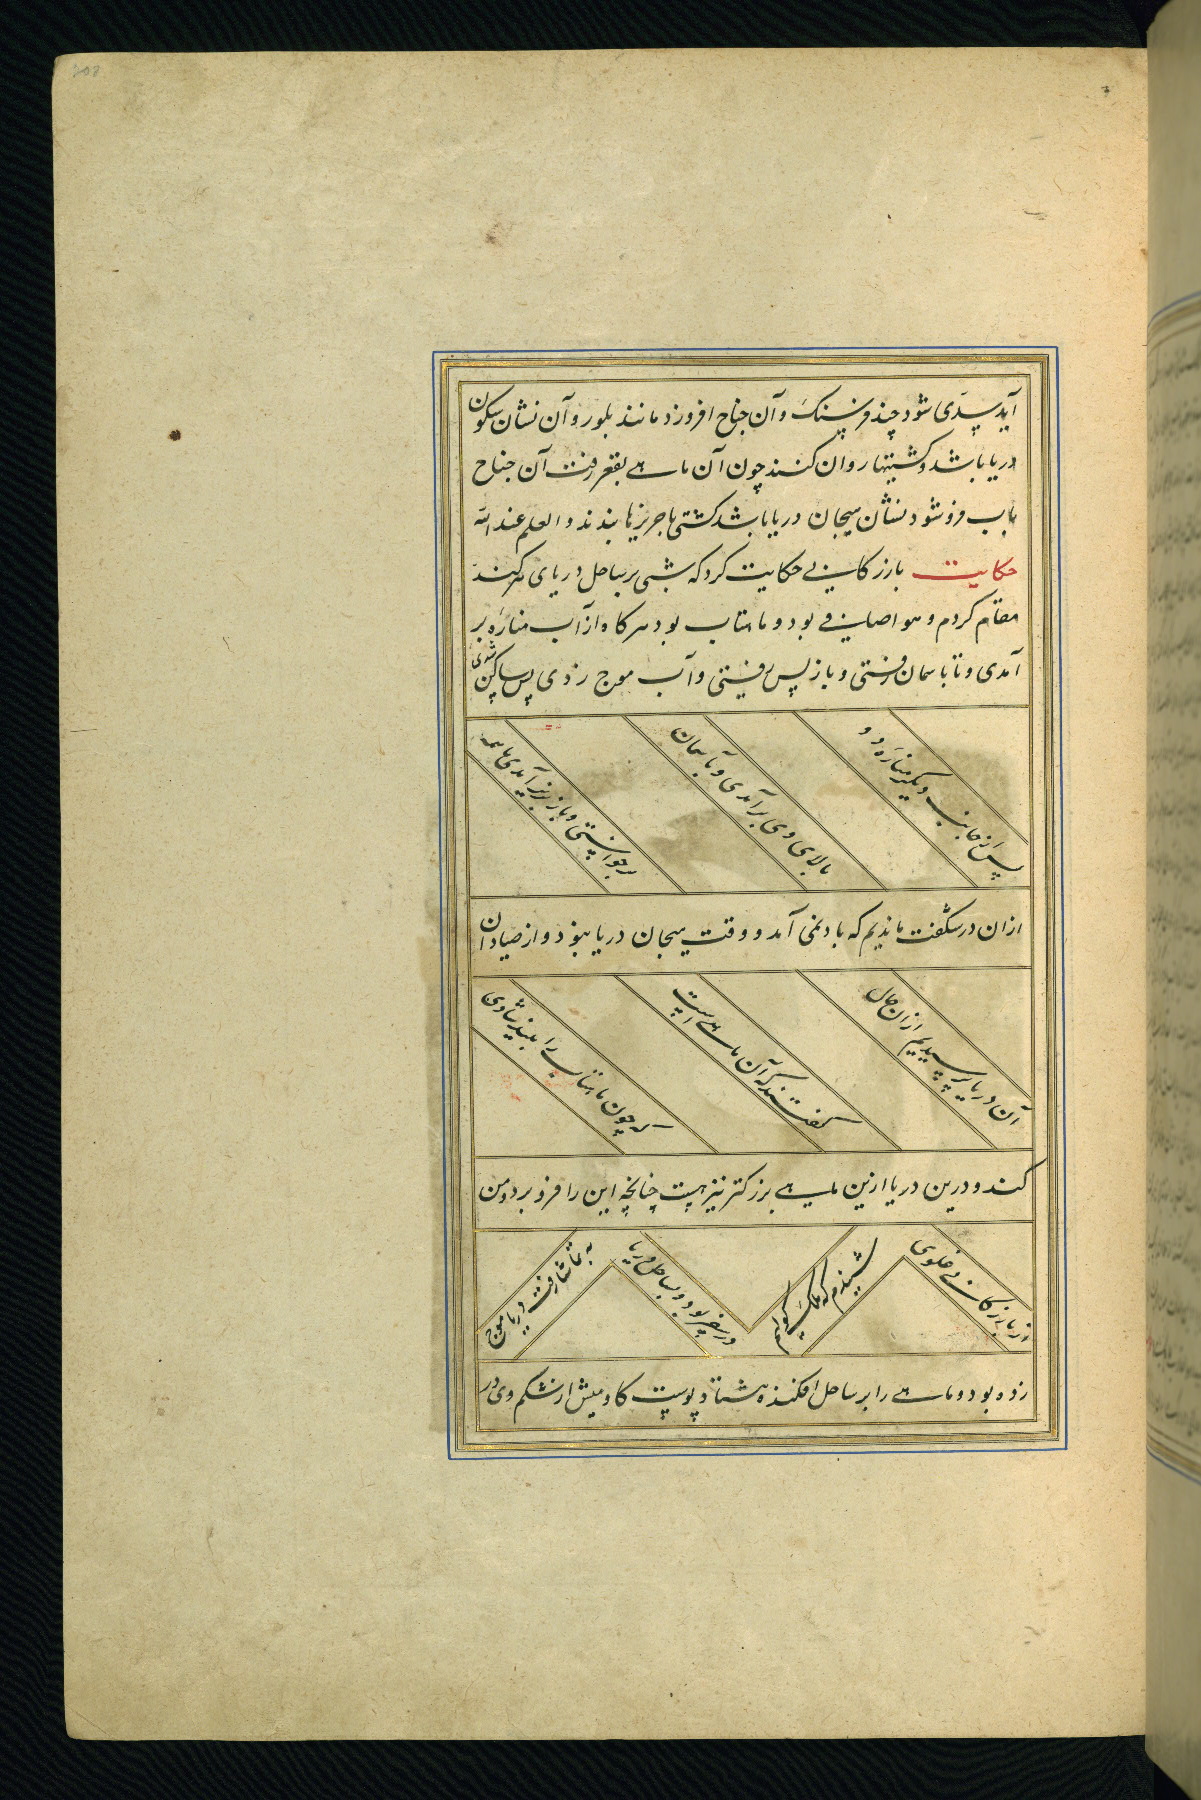 آید پیدی شود چند فرسنک و آن جناح افروزد مانند بلور و آن نشان سکون
دریا باشد و کشتیها روان کنند چون آن ماهی بقعر رفت آن جناح
بآب فرو شود نشان هیجان دریا باشد کشتی با جریزها بندند و العلم عند الله
حکایت بازرکانی حکایت کرد که شبی بر ساحل دریای هرکند
مقام کردم و هوا صافی بود و ماهتاب بود هرکاه از آب مناره بر
آمدی و تا باسمان رفتی و باز پس رفتی و آب موج زدی پس ساکن شدی
پس از جانب دیکر مناره دو
بالای وی برآمدی و تا باسمان
بر هوا رفتی و باز بزیر آمدی ما همه
ازان در شکفت ماندیم که باد نمی آمد و وقت هیجان دریا نبود و از صیادان
آن دریا پرسیدیم ازان حال
کفتند که آن ماهی است
که چون ماهتاب را بیند شادی
کند و درین دریا ازین ماهی بزرکتر نیز هست چنانچه این را فرو برد و من
از بازرکانی خلوی
شنیدم که ملک
در سفر بود و بساحل دریا
به تماشا رفت دریا موج
زده بود و ماهی را بر ساحل افکنده هشتاد پوست کاومیش از شکم وی در